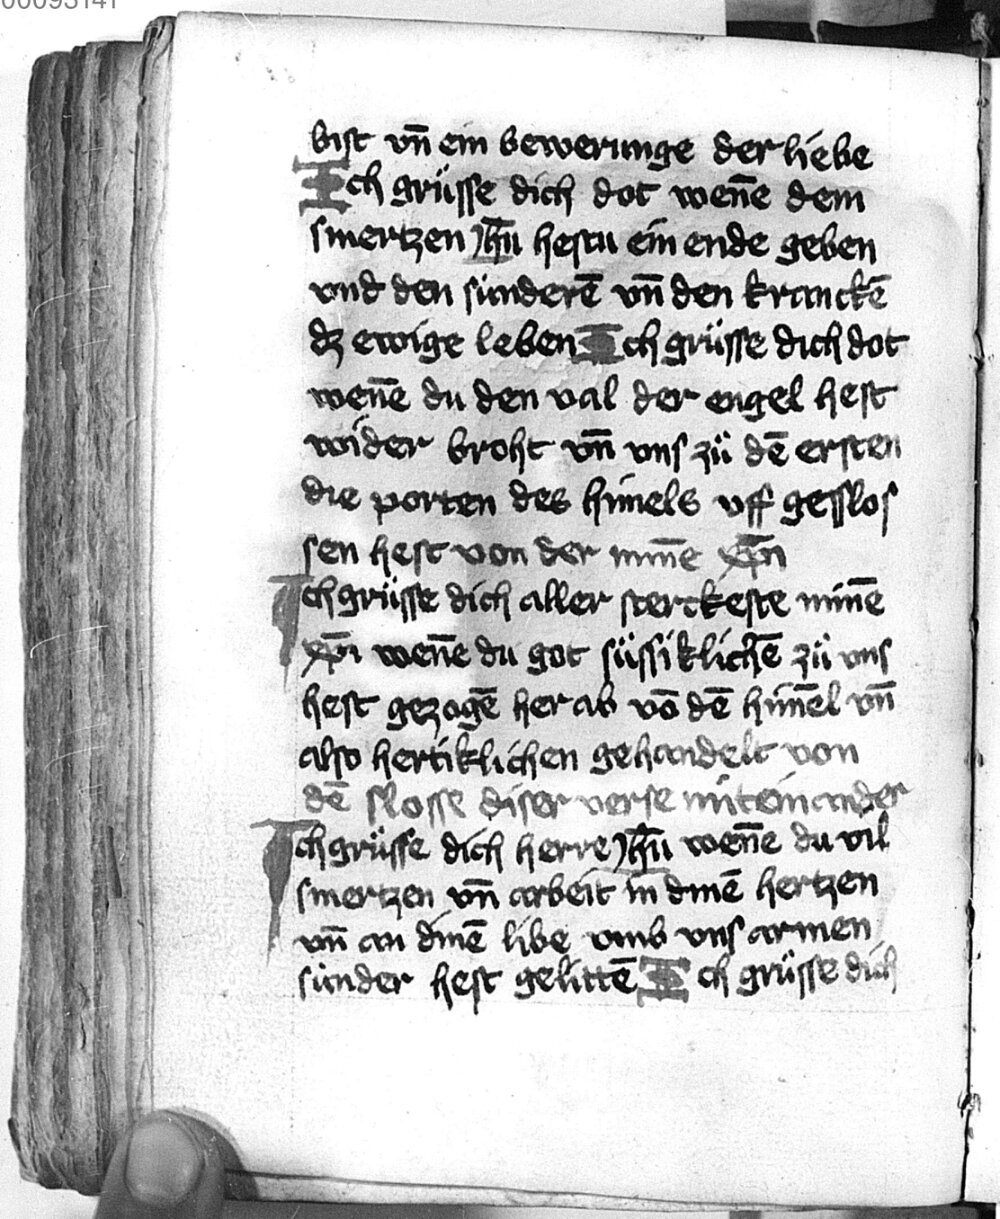 00093141
bist vn̄ ein bewerunge der liebe
Ich grüsse dich dot wen̄e dem
smertzen Jhū hestu ein ende geben
vnd den sünderē vn̄ den kranckē
dz ewige leben Ich grüsse dich dot
wen̄e du den val der engel hest
wider broht vn̄ vns zü dē ersten
die porten des himels vff gesslos
sen hest von der minne xp̄i
Ich grüsse dich aller sterckeste min̄e
xp̄i wen̄e du got süssiklichē zü vns
hest gezogē her ab vō dē himel vn̄
also hertiklichen gehandelt von
dē slosse diser verse mit einander
Ich grüsse dich herre Jhū wen̄e du vil
smertzen vn̄ arbeit in dinē hertzen
vn̄ an dinē libe vmb vns armen
sünder hest gelittē Ich grüsse dich